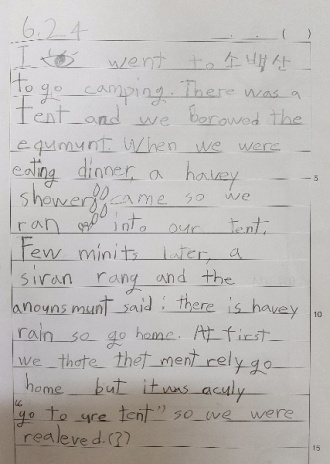 6.24
. . ( )
I went to 소백산
to go camping. There was a
tent and we borowed the
equmunt. When we were
eating dinner, a havey
shower came so we
ran into our tent.
Few minits later, a
siran rang and the
anounsmunt said : there is havey
rain so go home. At first
we thote thet ment rely go
home but it was aculy
"go to yre tent" so we were
realeved.(?)
5
10
15